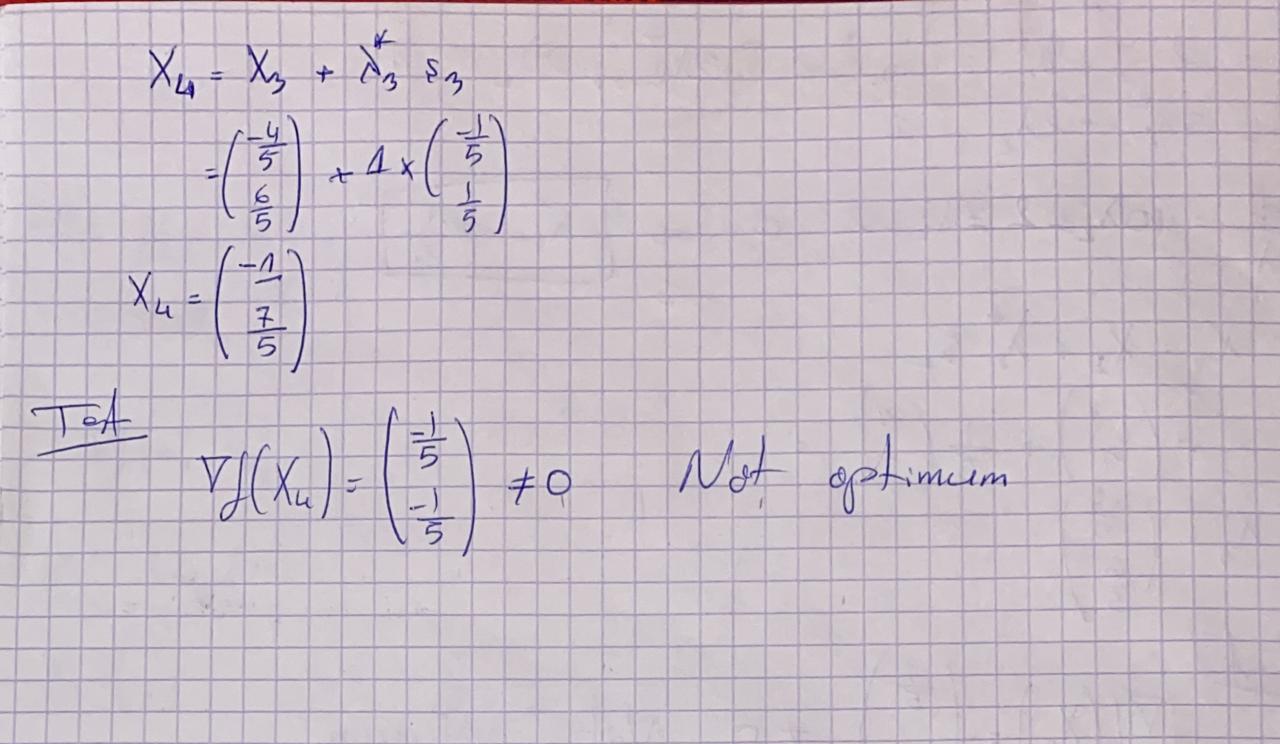 X₄ = X₃ + λ₃* s₃
= (-4/5 6/5) + 1 × (-1/5 1/5)
X₄ = (-1 7/5)
ToA
∇f(X₄) = (-1/5 -1/5) ≠ 0 Not optimum